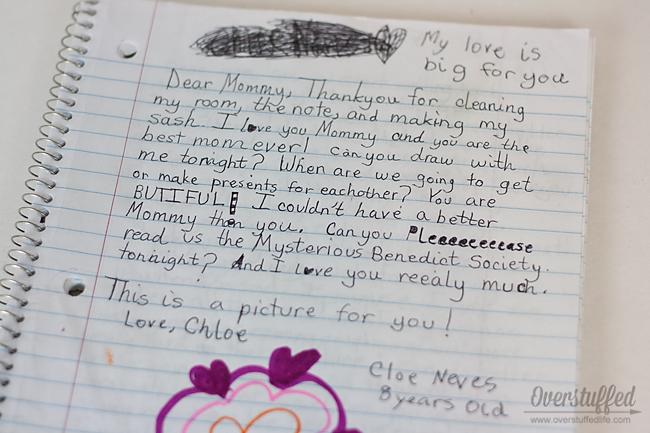 My love is
big for you
Dear Mommy, Thankyou for cleaning
my room, the note, and making my
sash. I love you Mommy and you are the
best mom ever! Can you draw with
me tonight? When are we going to get
or make presents for eachother? You are
BUTIFUL! I couldn't have a better
Mommy than you. Can you Pleeeeeeeease
read us the Mysterious Benedict Society.
tonaight? And I love you reealy much.
This is a picture for you!
Love, Chloe
Cloe Neves
8 years Old
Overstuffed
www.overstuffedlife.com